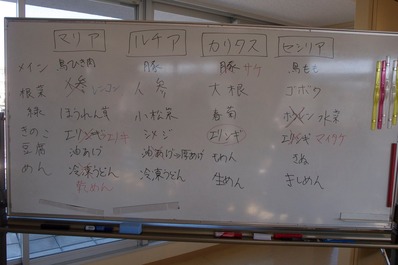 マリア ルチア カリタス センリア
メイン 鳥ひき肉 豚 豚 サケ 鳥もも
根菜 人参 レンコン 人参 大根 ゴボウ
緑 ほうれん草 小松菜 春菊 水菜
きのこ エリンギ シメジ エリンギ エリンギ マイタケ
豆腐 油あげ 油あげ 厚あげ もめん きぬ
めん 冷凍うどん 冷凍うどん 生めん きしめん
乾めん